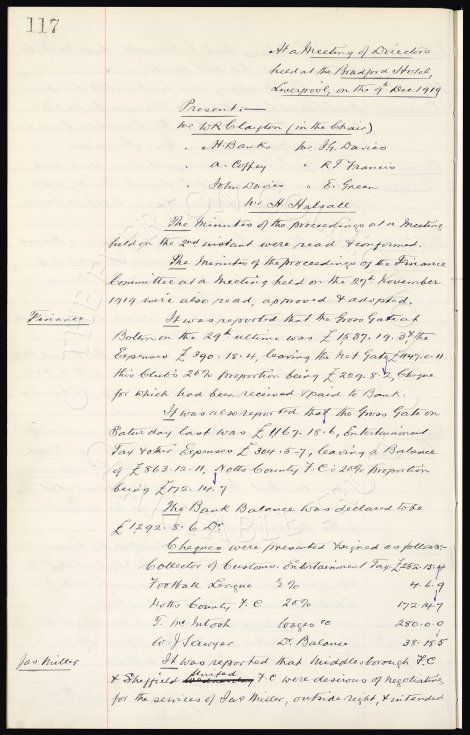 117
At a Meeting of Directors
held at the Bradford Hotel,
Liverpool, on the 9th Dec 1919
Present:-
Mr WR Clayton (in the Chair)
" H. Banks Mr J.G. Davies
" A. Coffey " R.T Francis
" John Davies " E. Green
Mr H. Halsall
The Minutes of the proceedings at a Meeting
held on the 2nd instant were read & confirmed.
The Minutes of the proceedings of the Finance
Committee at a Meeting held on the 27th November
1919 were also read, approved & adopted.
Finance It was reported that the Gross Gate at
Bolton on the 29th ultimo was £1537.19.3 & the
Expenses £390.18.4, leaving the Net Gate £1147.0.11
this Club's 20% proportion being £229.8.2, Cheque
for which had been received & paid to Bank.
It was also reported that the Gross Gate on
Saturday last was £1167.18.6, Entertainment
Tax & other Expenses £304.5.7, leaving a Balance
of £863.12.11, Notts County F.C's 20% proportion
being £172.14.7
The Bank Balance was declared to be
£1292.8.6 Dr.
Cheques were presented & signed as follows:-
Collector of Customs. Entertainment Tax £252.15.4
Football League ½% 4.6.9
Notts County F.C 20% 172.14.7
T. McIntosh Wages &c 280.0.0
W.J Sawyer Dr. Balance 38.18.5
Jas Miller It was reported that Middlesborough F.C
& Sheffield United F.C were desirous of negotiating
for the services of Jas Miller, outside right, & intended